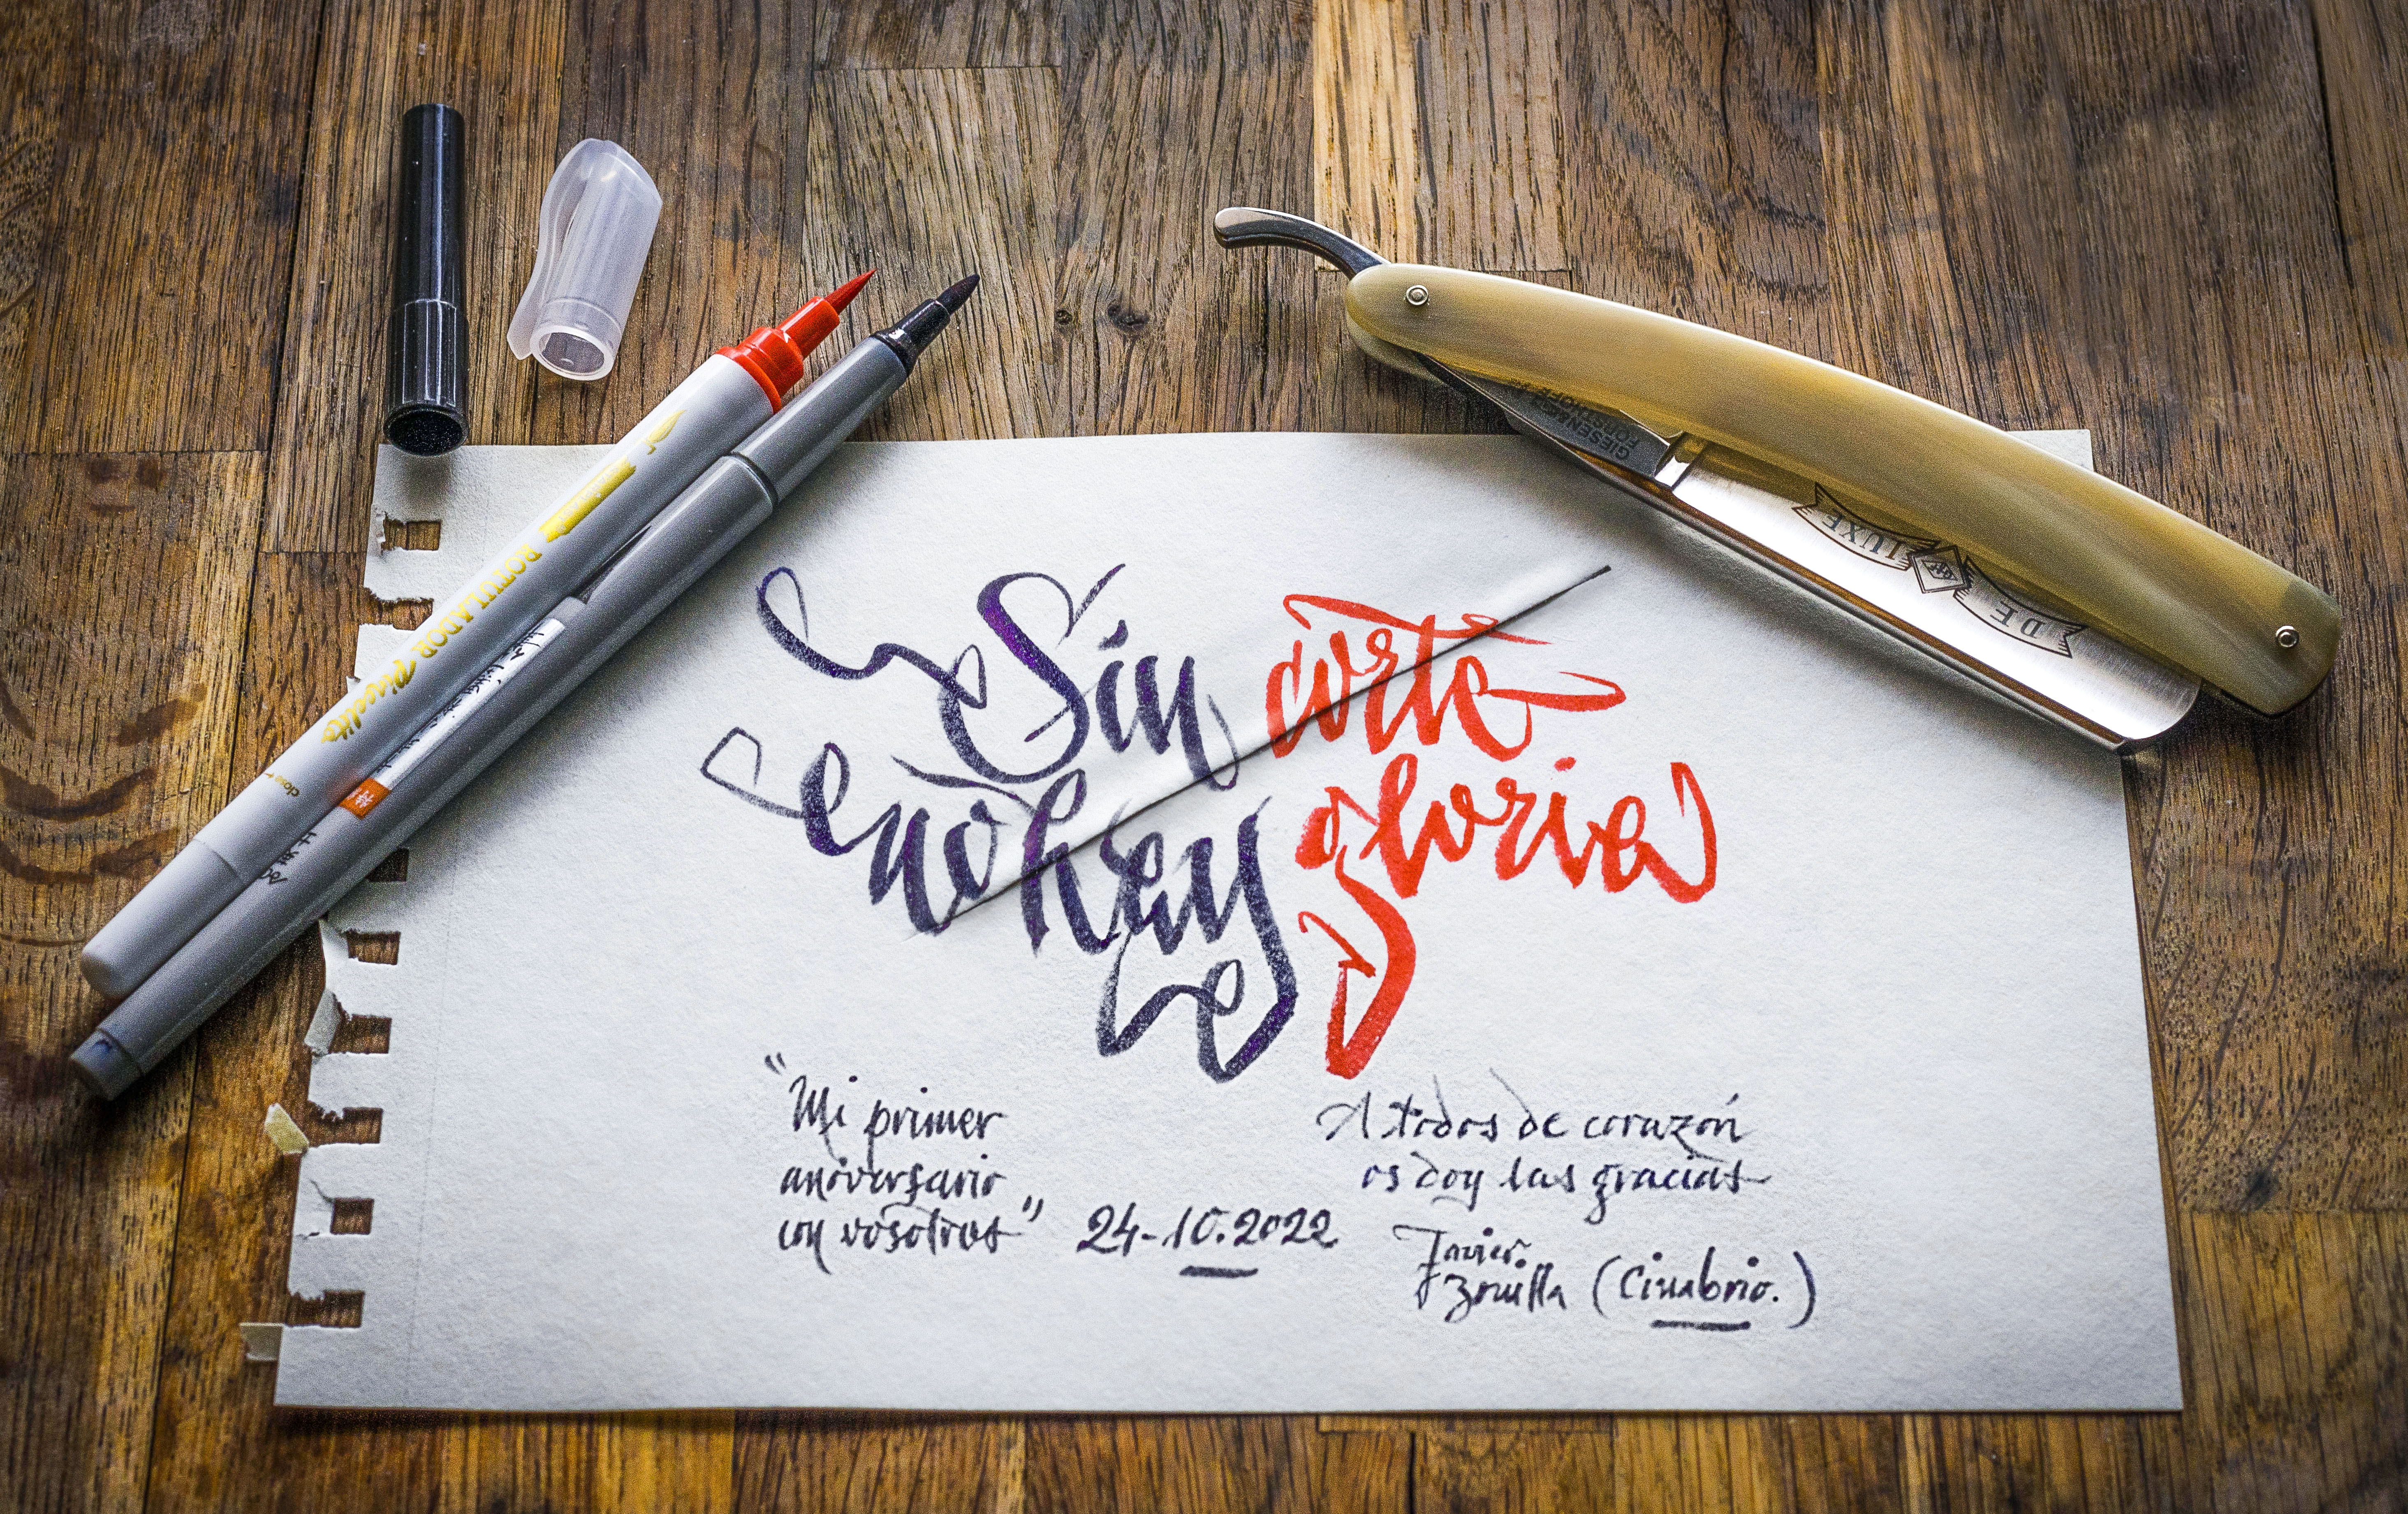 ROTULADOR Pincelito
GIESEN &
DE LUXE
Sin corte
no hay gloria
"Mi primer
aniversario
con vosotros" 24-10.2022
A todos de corazón
os doy las gracias
Javier
Zorrilla (Cinabrio.)